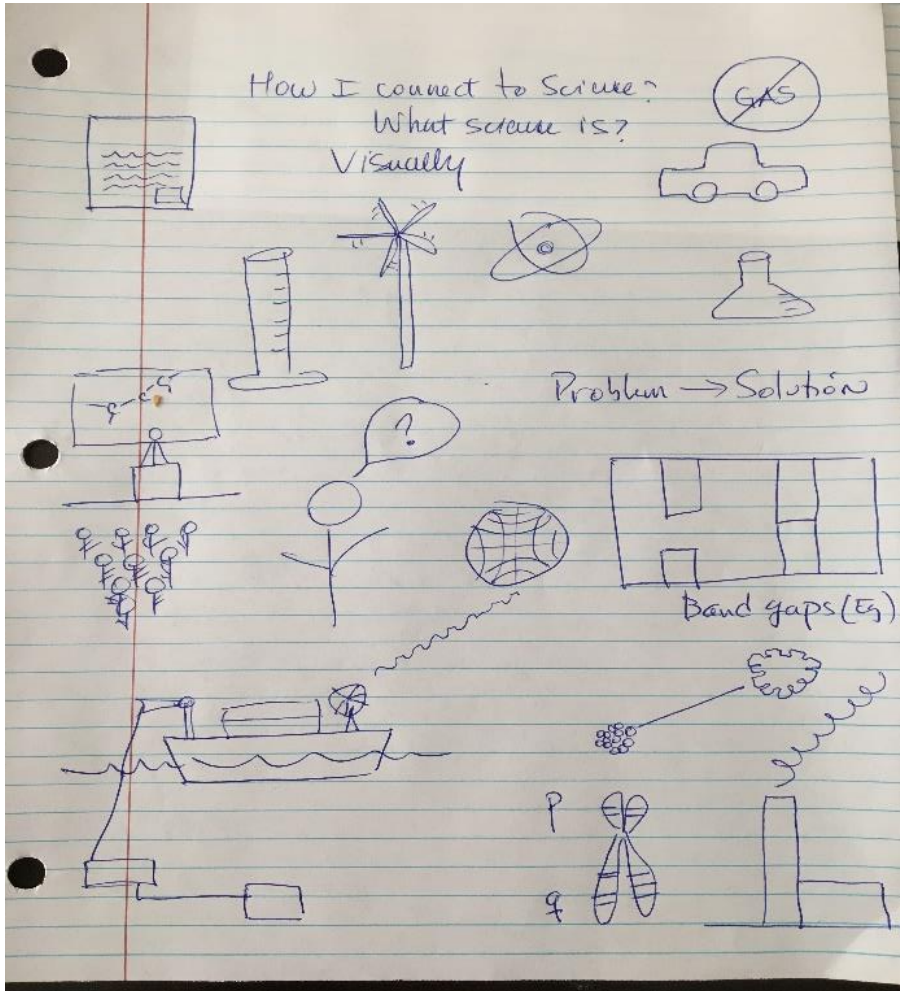 How I connect to Science?
What science is?
Visually
GAS
Problem → Solution
?
Band gaps (Eg)
p
q